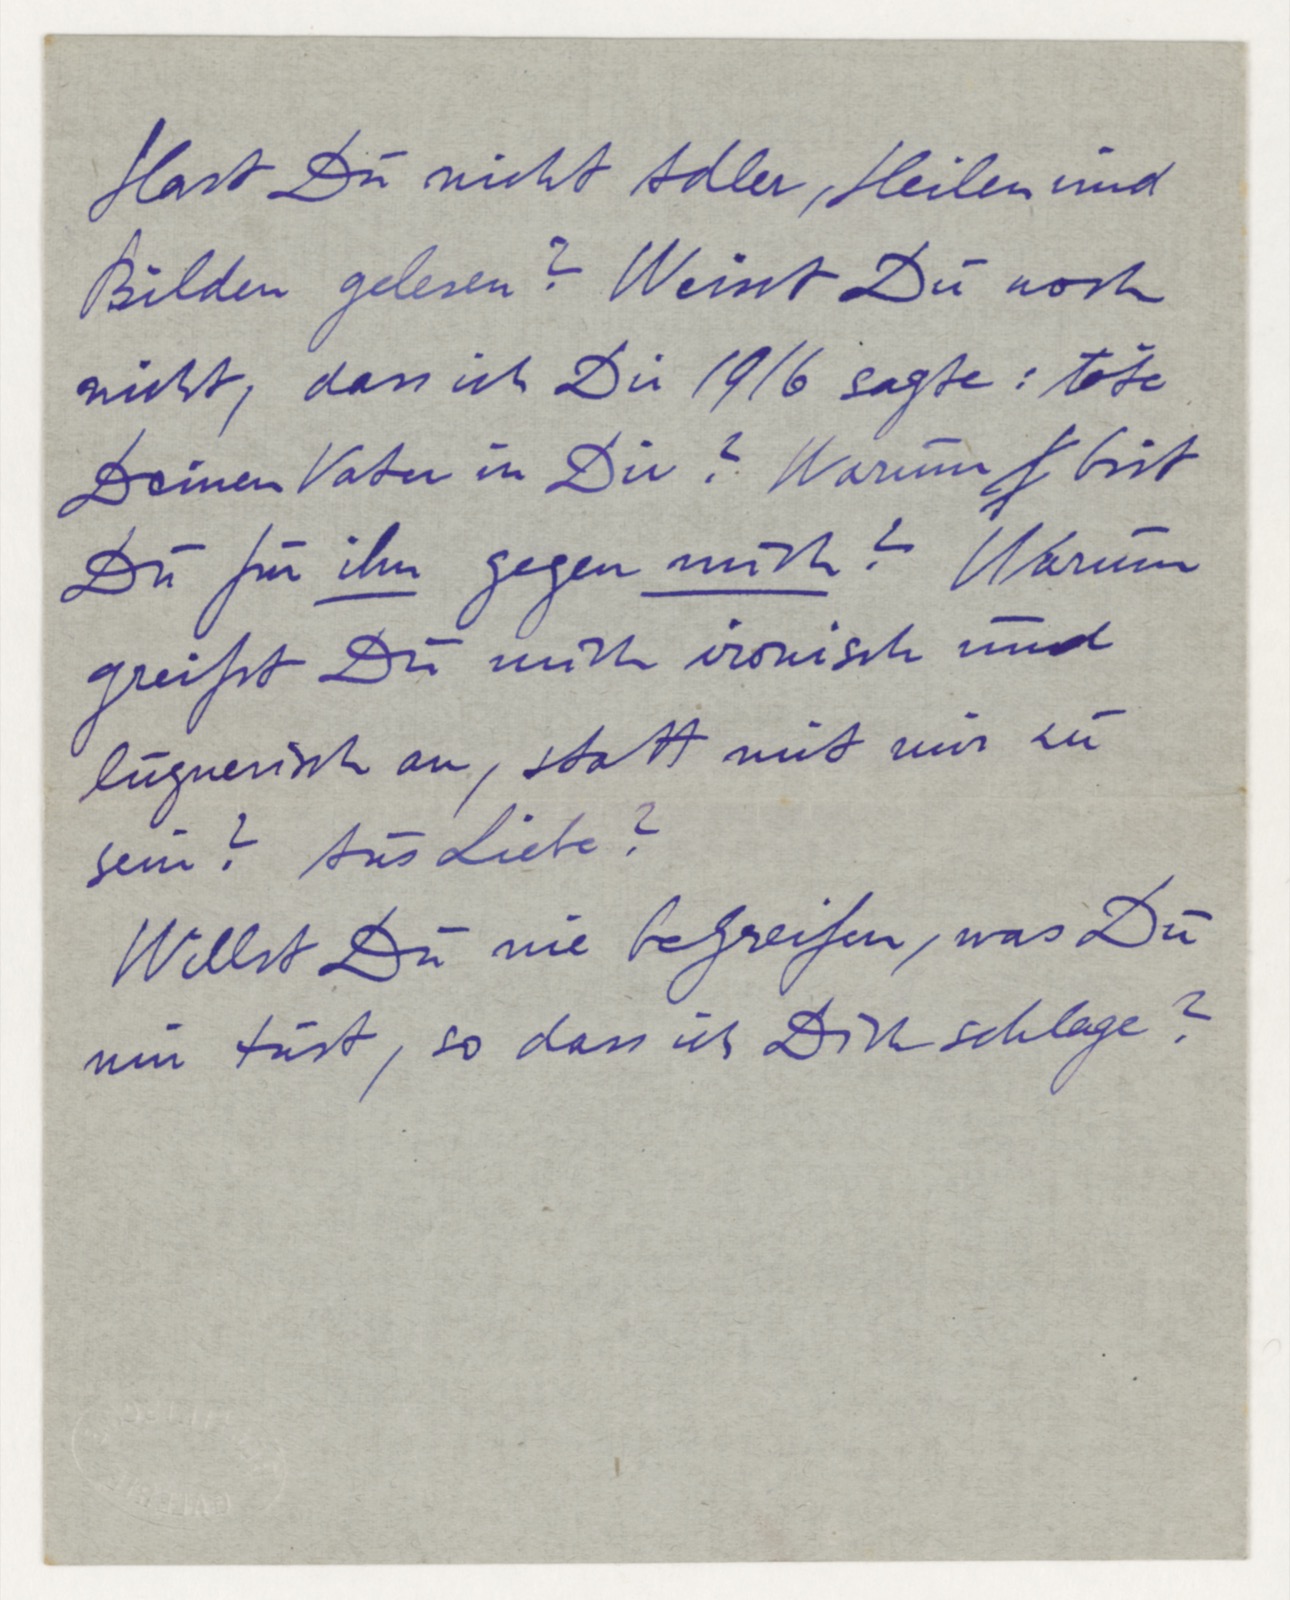 Hast Du nicht Adler, Heilen und
Bilden gelesen? Weisst Du noch
nicht, dass ich Dir 1916 sagte: töte
Deinen Vater in Dir? Warum bist
Du für ihn gegen mich? Warum
greifst Du mich ironisch und
lügnerisch an, statt mit mir zu
sein? Aus Liebe?
Willst Du nie begreifen, was Du
mir tust, so dass ich Dich schlage?